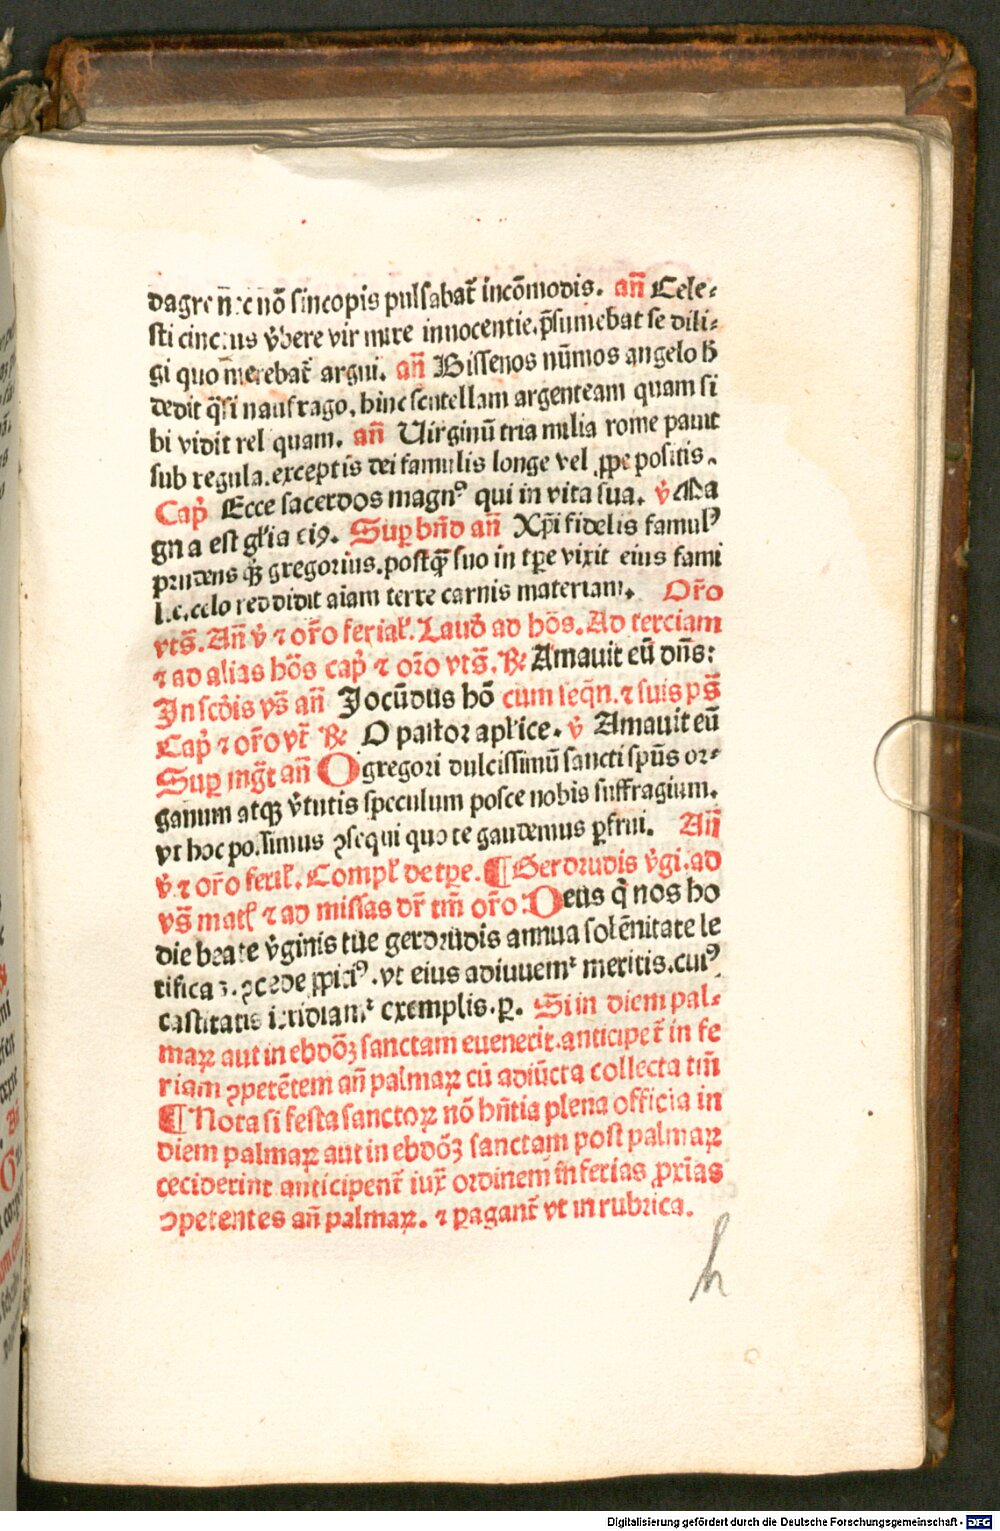 dagre nec nō sincopis pulsabat̄ incōmodis. an̄ Cele-
sti cinctus v̄bere vir mire innocentie. p̄sumebat se dili-
gi quo merebat̄ argui. an̄ Bissenos nūmos angelo h̄
dedit q̄si naufrago, hinc scutellam argenteam quam si
bi vidit rel quam. an̄ Uirginū tria milia rome pauit
sub regula. exceptis dei famulis longe vel ꝓpe positis.
Cap̄ Ecce sacerdos magnꝰ qui in vita sua. v̄ Ma
gna est gl̄ia eiꝰ. Suꝑ bn̄d an̄ Xp̄i fidelis famulꝰ
prudens q̄ꝫ gregorius. postq̄ȝ suo in tꝑe vixit eius fami
celo reddidit aīam terre carnis materiam. Or̄o
vts̄. An̄ v̄ ⁊ or̄o ferial̄. Laud̄ ad hōs. Ad terciam
⁊ ad alias hōs cap̄ ⁊ or̄o vts̄. ℟ Amauit eū dn̄s:
In sc̄dis vs̄ an̄ Jocūdus hō cum seqn̄. ⁊ suis ps̄
Cap̄ ⁊ or̄o vt̄ ℟ O pastor apl̄ice. v̄ Amauit eū
Suꝑ mgt̄ an̄ O gregori dulcissimū sancti spūs or-
ganum atqꝫ v̄tutis speculum posce nobis suffragium.
vt hoc possimus ꝯsequi quo te gaudemus ꝑfrui. An̄
v̄ ⁊ or̄o feril̄. Compl̄ de tꝑe. ¶ Gerdrudis v̄gi. ad
vs̄ matl̄ ⁊ ad missas dr̄ tm̄ or̄o. Deus q̄ nos ho
die beate v̄ginis tue gerdrudis annua solēnitate le
tificas. ꝯcede ꝓpiciꝰ. vt eius adiuuemᷣ meritis. cuiꝰ
castitatis irridiamᷣ exemplis. ꝑ. Si in diem pal-
maꝝ aut in ebdōꝫ sanctam euenerit. anticipet̄ in fe
riam ꝯpetētem an̄ palmaꝝ cū adiūcta collecta tm̄
¶ Nota si festa sanctoꝝ nō hn̄tia plena officia in
diem palmaꝝ aut in ebdōꝫ sanctam post palmaꝝ
ceciderint anticipent̄ iux̄ ordinem in ferias ꝓxīas
ꝯpetentes an̄ palmaꝝ. ⁊ ꝑagant̄ vt in rubrica.
h
Digitalisierung gefördert durch die Deutsche Forschungsgemeinschaft - DFG